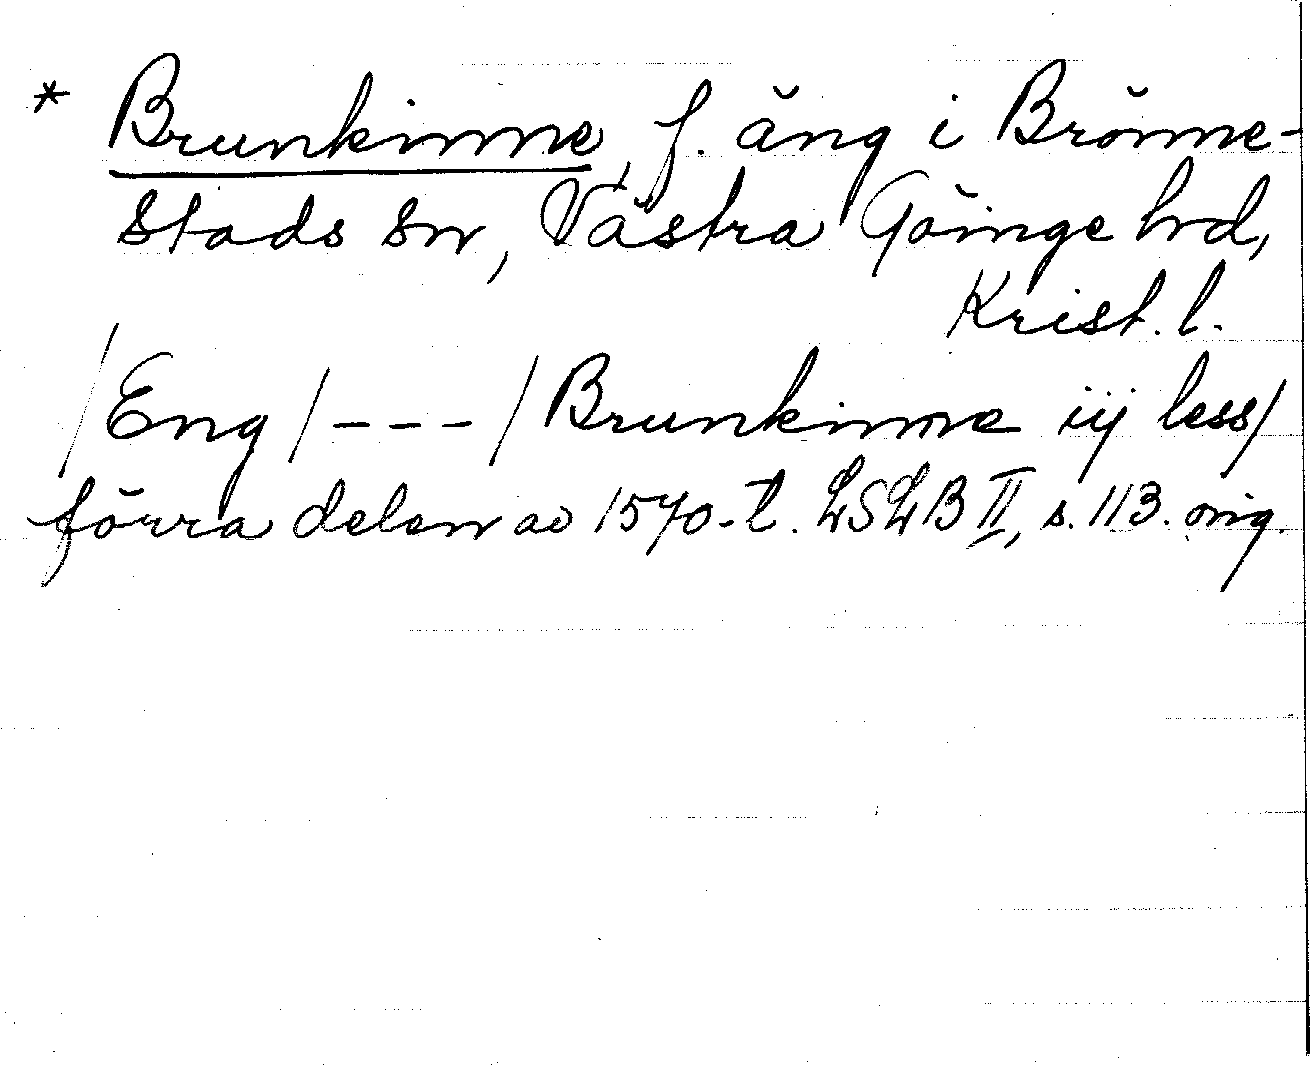 * Brunkinne, f. äng i Brönne-
stads sn, Västra Göinge hrd,
Krist. l.
/Eng/---/Brunkinne iij less/
förra delen av 1570-t. LSLB II, s. 113. orig.